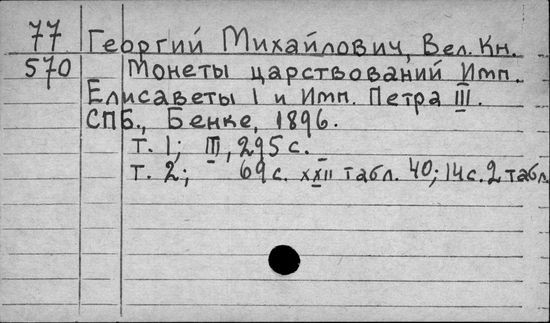 77 Георгий Михайлович, Вел. Кн.
570 Монеты царствований Имп.
Елисаветы I и Имп. Петра III.
СПБ., Бенке, 1896.
Т. 1; III, 295 с.
Т. 2; 69 с. XXII табл. 40; 14 с. 2 табл.